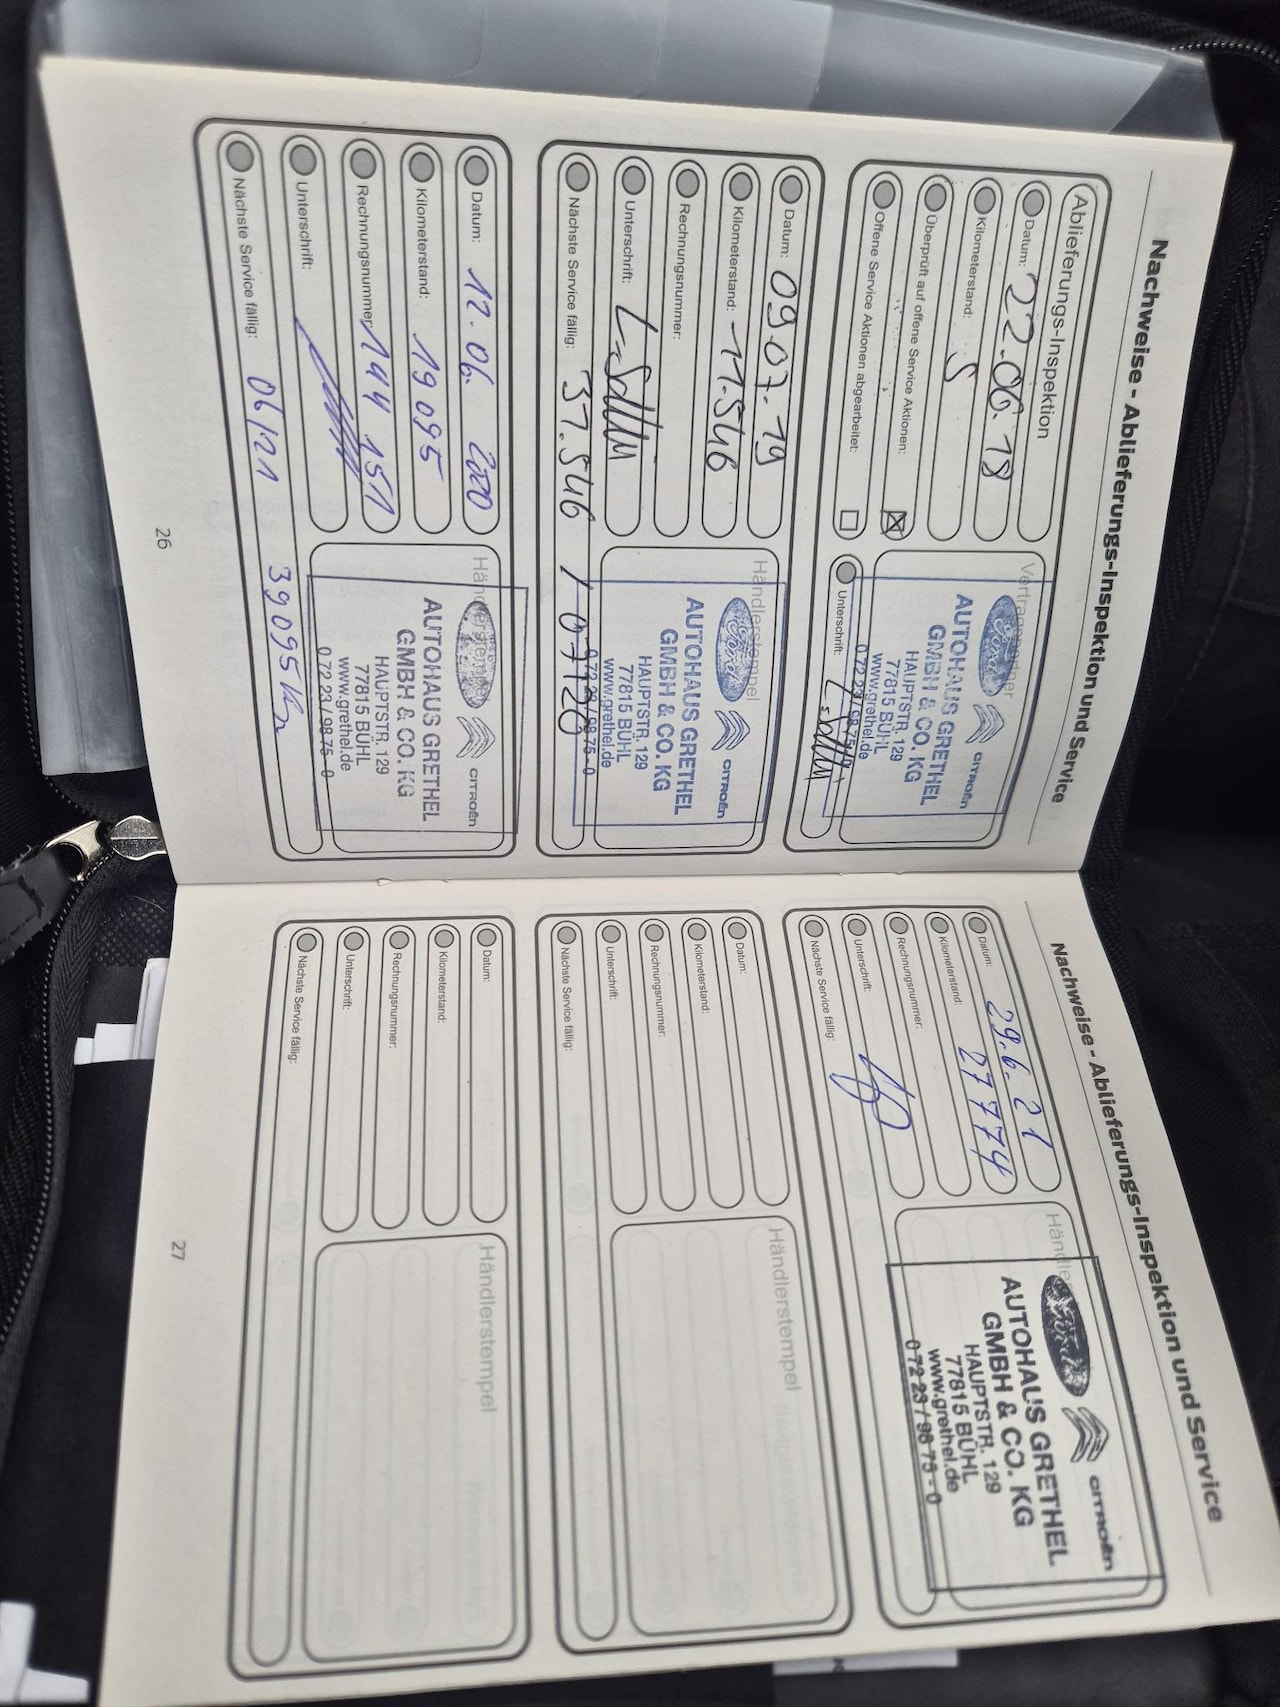 Nachweise - Ablieferungs-Inspektion und Service
Ablieferungs-Inspektion
Datum: 22.06.18
Kilometerstand: 5
Überprüft auf offene Service Aktionen: ☒
Offene Service Aktionen abgearbeitet: ☐
Vertragspartner
Ford CITROËN
AUTOHAUS GRETHEL
GMBH & CO. KG
HAUPTSTR. 129
77815 BÜHL
www.grethel.de
0 72 23 / 98 75 - 0
Unterschrift:
Datum: 09.07.19
Kilometerstand: 11.546
Rechnungsnummer:
Unterschrift:
Nächste Service fällig: 31.546 / 07/20
Händlerstempel
Ford CITROËN
AUTOHAUS GRETHEL
GMBH & CO. KG
HAUPTSTR. 129
77815 BÜHL
www.grethel.de
0 72 23 / 98 75 - 0
Datum: 12.06. 2020
Kilometerstand: 19095
Rechnungsnummer: 144 151
Unterschrift:
Nächste Service fällig: 06/21 39095 km
Händlerstempel
CITROËN
AUTOHAUS GRETHEL
GMBH & CO. KG
HAUPTSTR. 129
77815 BÜHL
www.grethel.de
0 72 23 / 98 75 - 0
26
Nachweise - Ablieferungs-Inspektion und Service
Datum: 29.6.21
Kilometerstand: 27774
Rechnungsnummer:
Unterschrift:
Nächste Service fällig:
Ford CITROËN
AUTOHAUS GRETHEL
GMBH & CO. KG
HAUPTSTR. 129
77815 BÜHL
www.grethel.de
0 72 23 / 98 75 - 0
Datum:
Kilometerstand:
Rechnungsnummer:
Unterschrift:
Nächste Service fällig:
Händlerstempel
Datum:
Kilometerstand:
Rechnungsnummer:
Unterschrift:
Nächste Service fällig:
Händlerstempel
27